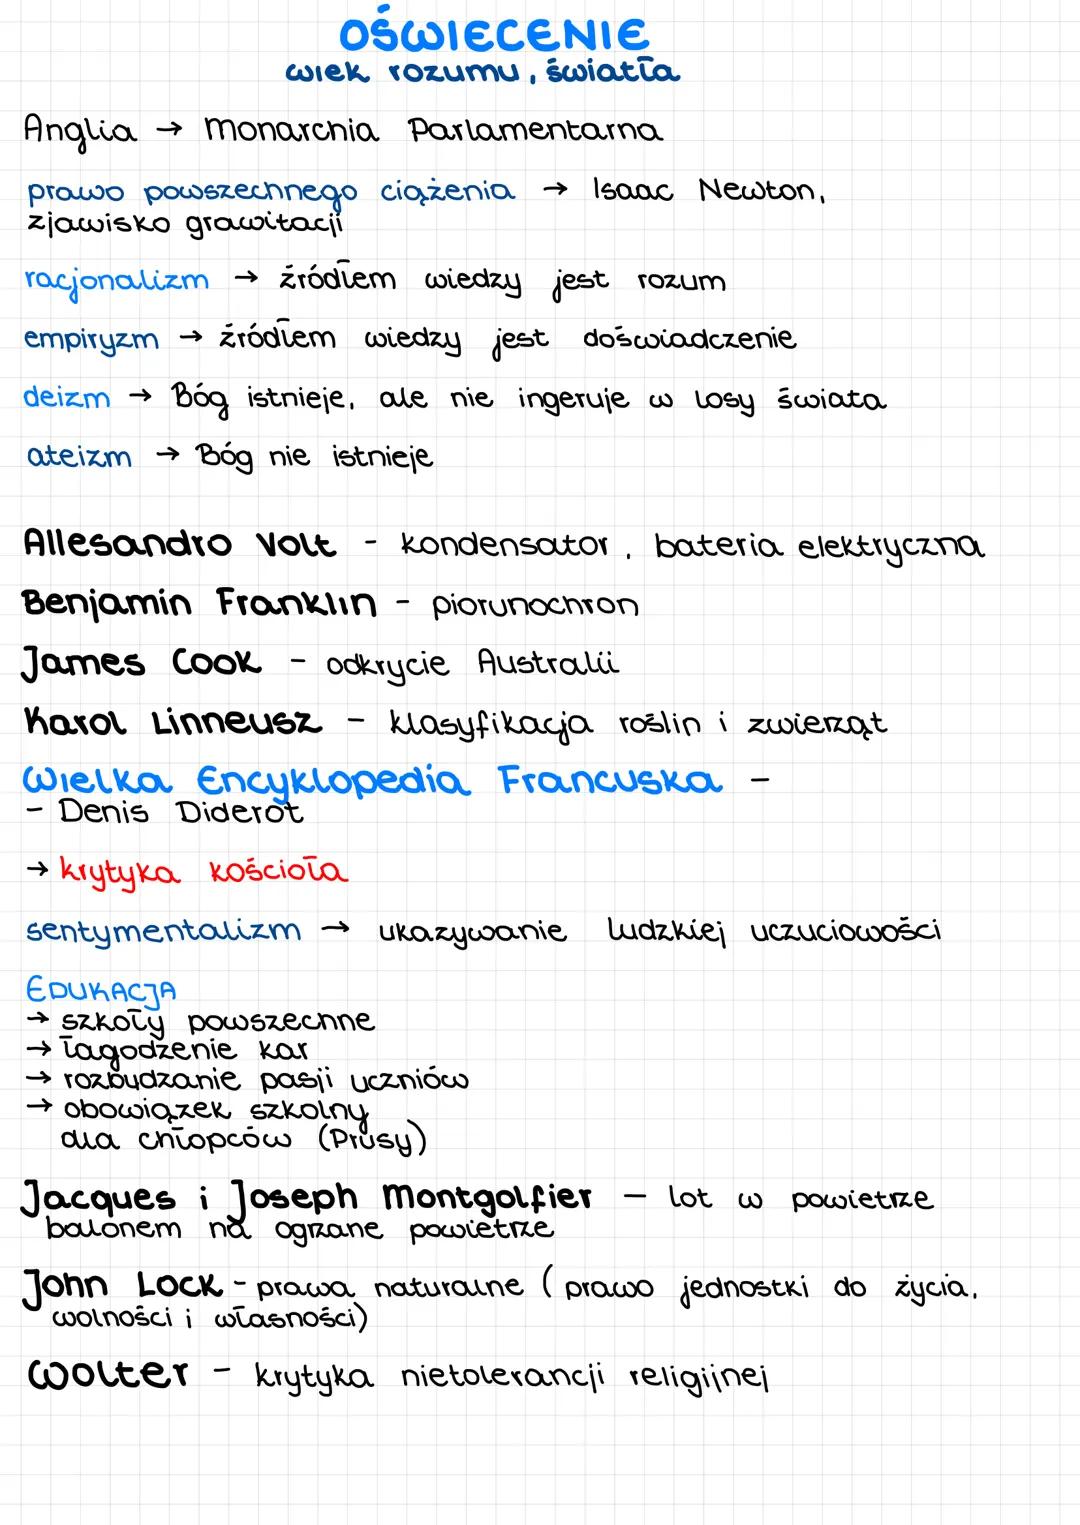 OŚWIECENIE
wiek rozumu, światła
Anglia → Monarchia Parlamentarna
prawo powszechnego ciążenia → Isaac Newton,
zjawisko grawitacji
racjonalizm → źródłem wiedzy jest rozum
empiryzm → źródłem wiedzy jest doświadczenie
deizm → Bóg istnieje, ale nie ingeruje w losy świata
ateizm → Bóg nie istnieje
Allesandro Volt - kondensator, bateria elektryczna
Benjamin Franklin - piorunochron
James Cook - odkrycie Australii
Karol Linneusz - klasyfikacja roślin i zwierząt
Wielka Encyklopedia Francuska -
- Denis Diderot
→ krytyka kościoła
sentymentalizm → ukazywanie ludzkiej uczuciowości
EDUKACJA
→ szkoły powszechne
→ łagodzenie kar
→ rozbudzanie pasji uczniów
→ obowiązek szkolny
dla chłopców (Prusy)
Jacques i Joseph Montgolfier - lot w powietrze
balonem na ogrzane powietrze
John Lock - prawa naturalne (prawo jednostki do życia,
wolności i własności)
Wolter - krytyka nietolerancji religijnej